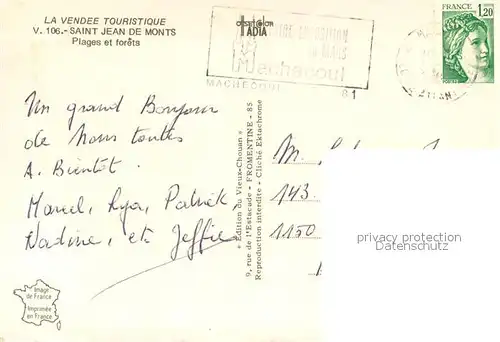 LA VENDEE TOURISTIQUE
V. 106.- SAINT JEAN DE MONTS
Plages et forêts
TADIA
Machecoul
MACHECOUL
FRANCE 1,20
Un grand Bonjour
de Nous toutes
A. Bientôt.
Marcel, Lya, Patrick,
Nadine, et Jeffie
« Edition du Vieux-Chouan »
9, rue de l'Estacade - FROMENTINE - 85
Reproduction interdite - Cliché Ektachrome
M.
143
1150
privacy protection
Datenschutz
Image
de France
Imprimée
en France